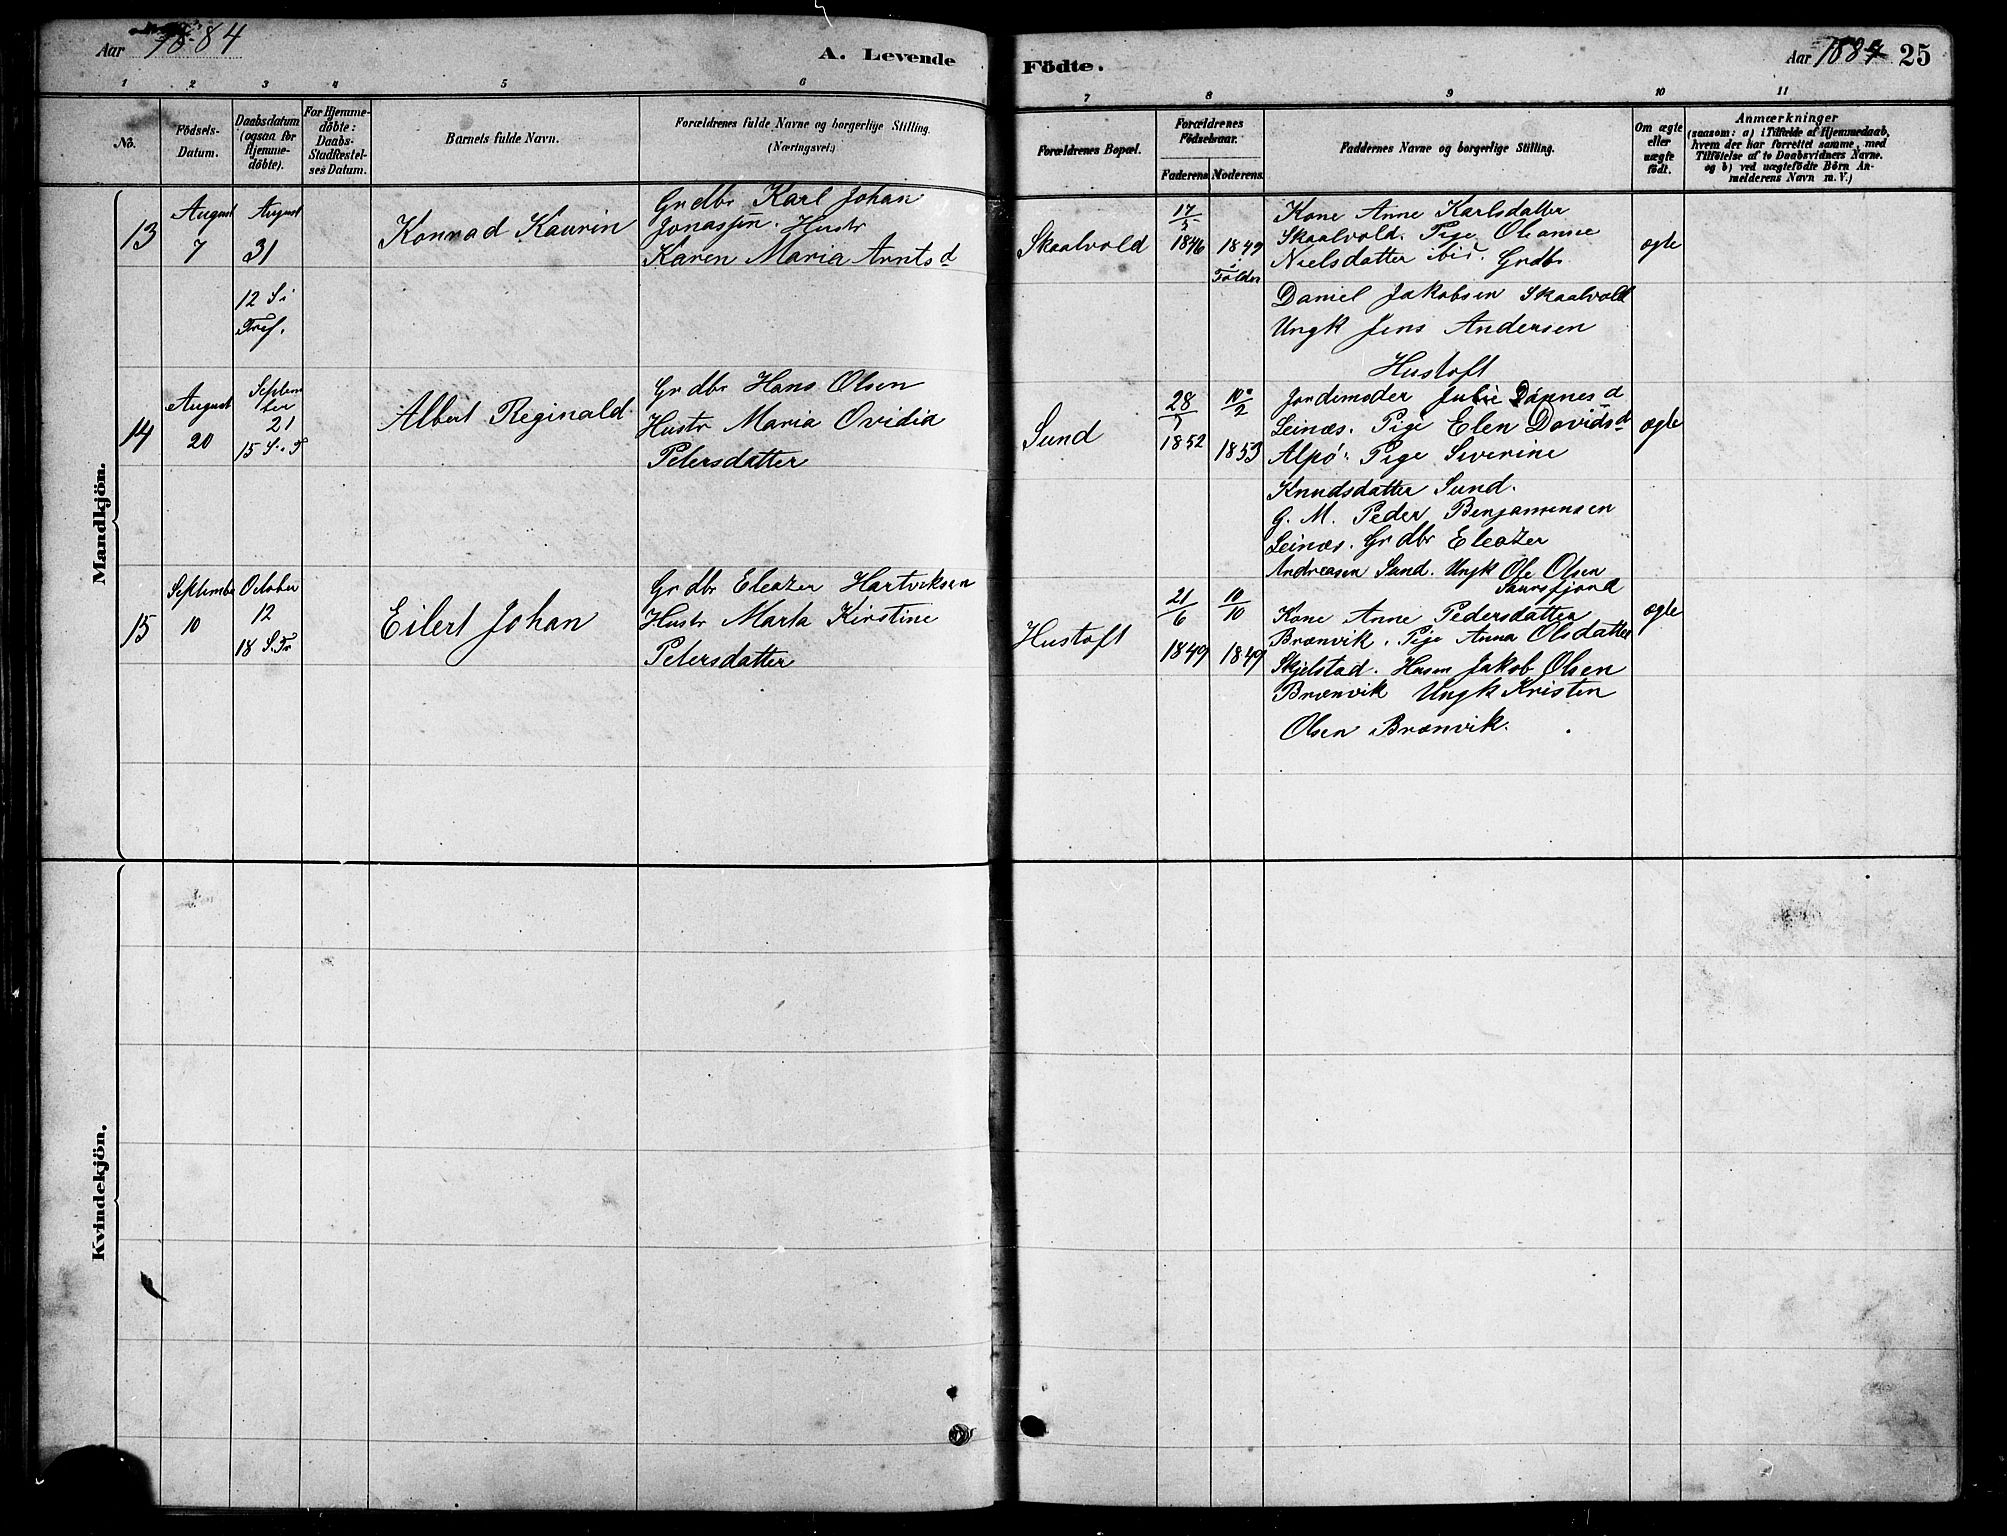 Aar 1884
A. Levende
1 2 3 4 5 6
No.
Födsels-
Datum.
Daabsdatum
(ogsaa for
Hjemme-
döbte).
For Hjemme-
döbte:
Daabs-
Stadfæstel-
ses Datum.
Barnets fulde Navn.
Forældrenes fulde Navne og borgerlige Stilling.
(Næringsvei.)
Mandkjön.
13
August
7
August
31
12 S i
Tref.
Konrad Kaurin
Grdbr Karl Johan
Jonassen. Hustr
Karen Maria Arntsd
14
August
20
Septem
ber
21
15 S. T
Albert Reginald
Grdbr Hans Olsen
Hustr Maria Ovidia
Petersdatter
15
Septembe
10
October
12
18 S. Tr
Eilert Johan
Grdbr Eleazer Hartviksen
Hustr Marta Kirstine
Petersdatter
Kvindekjön.
Födte.
Aar 1884 25
7 8 9 10 11
Forældrenes Bopæl.
Forældrenes
Födselsaar.
Faderens. Moderens.
Faddernes Navne og borgerlige Stilling.
Om ægte
eller
uægte
født.
Anmærkninger
(saasom: a) i Tilfælde af Hjemmedaab,
hvem der har forrettet samme, med
Tilföielse af to Daabsvidners Navne.
og b) ved uægtefödte Börn An-
melderens Navn m. V.)
Skaalvold
17/5
1846
1849
i
Folden
Kone Anne Karlsdatter
Skaalvold. Pige Oleanne
Nielsdatter ibid. Grdbr
Daniel Jakobsen Skaalvold
Ungk Jens Andersen
Hustoft
ægte
Sund
28
1852
10/2
1853
Jordemoder Julie
Leinæs. Pige Elen Davidsd
Alpö. Pige Severine
Knudsdatter Sund.
G. M. Peder Benjaminsen
Leinæs. Grdbr Eleazer
Andreasen Sund. Ungk Ole Olsen
Saursfjord
ægte
Hustoft
21/6
1849
10/10
1849
Kone Anne Pedersdatter
Brænvik. Pige Anna Olsdatter
Skjelstad. Husm Jakob Olsen
Brænvik Ungk Kristen
Olsen Brænvik.
ægte